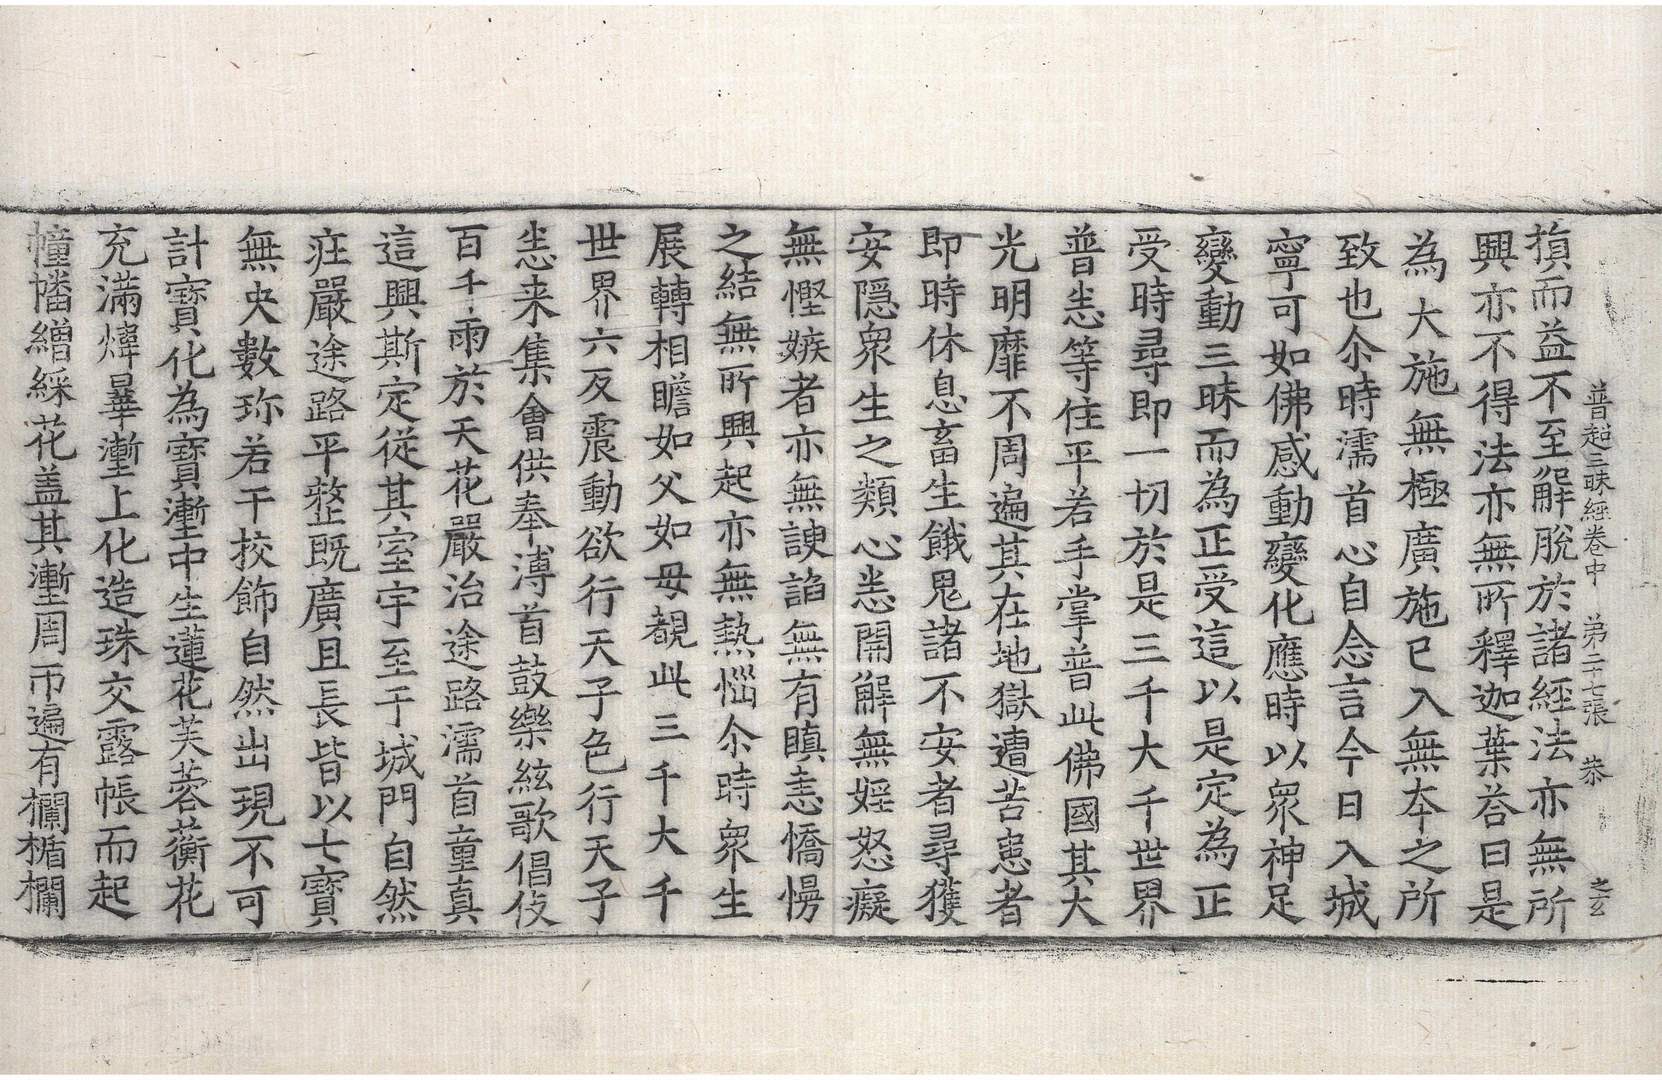 普超三昧經卷中　第二十七張　恭
之玄
損而益不至解脫於諸經法亦無所
興亦不得法亦無所釋迦葉荅曰是
為大施無極廣施已入無夲之所
致也尒時濡首心自念言今日入城
寧可如佛感動變化應時以衆神足
變動三昧而為正受這以是定為正
受時尋即一切於是三千大千世界
普悉等住平若手掌普此佛國其大
光明靡不周遍其在地獄遭苦患者
即時休息畜生餓鬼諸不安者尋獲
安隱衆生之類心悉開解無婬怒癡
無慳嫉者亦無諛諂無有瞋恚憍慢
之結無所興起亦無熱惱尒時衆生
展轉相瞻如父如母覩此三千大千
世界六反震動欲行天子色行天子
悉来集會供奉溥首鼓樂絃歌倡伎
百千雨於天花嚴治途路濡首童真
這興斯定從其室宇至于城門自然
莊嚴途路平整既廣且長皆以七寶
無央數珎若干挍飾自然出現不可
計寶化為寶壍中生蓮花芙蓉蘅花
充滿煒曅壍上化造珠交露帳而起
幢幡繒綵花盖其壍周帀遍有欄楯欄